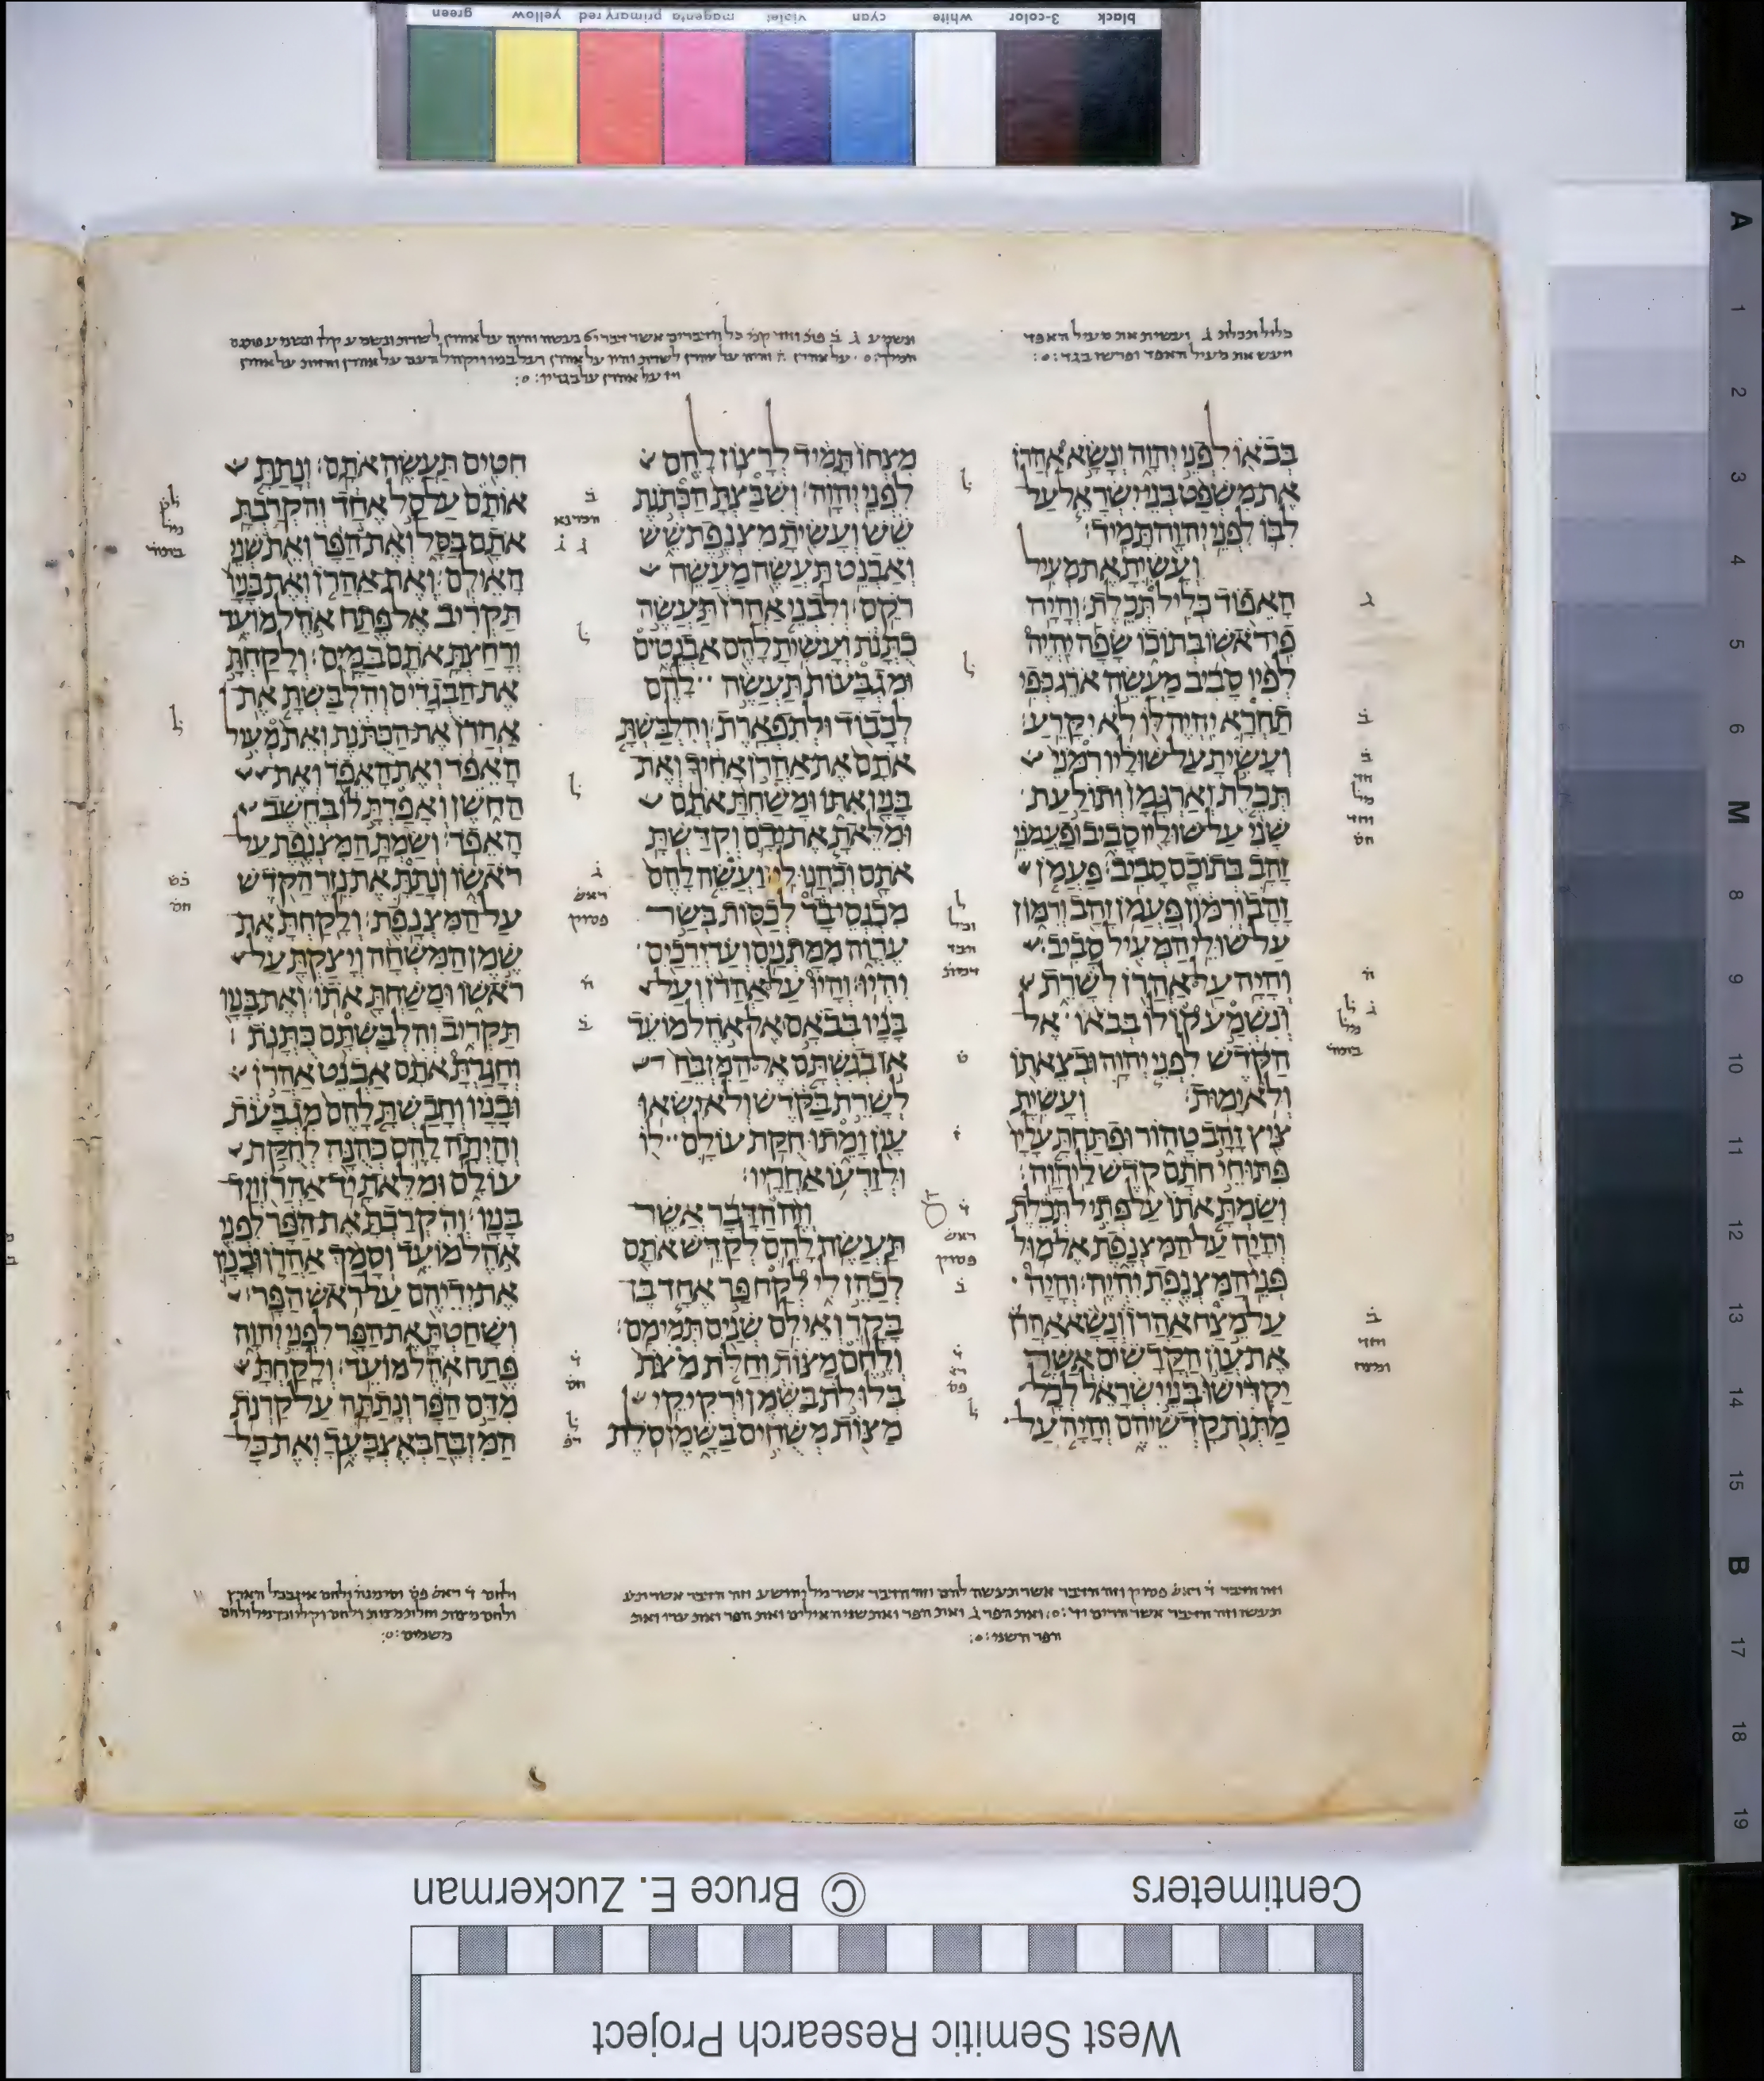 black 3-color white cyan violet magenta primary red yellow green
כליל תכלת ג ועשית את מעיל האפד
ויעש את מעיל האפד
בבאו לפני יהוה ונשא אהרן
את משפט בני ישראל על
לבו לפני יהוה תמיד׃
ועשית את מעיל
האפוד כליל תכלת׃ והיה
פי ראשו בתוכו שפה יהיה
לפיו סביב מעשה ארג כפי
תחרא יהיה לו לא יקרע׃
ועשית על שוליו רמני
תכלת וארגמן ותולעת
שני על שוליו סביב ופעמני
זהב בתוכם סביב׃ פעמן
זהב ורמון פעמן זהב ורמון
על שולי המעיל סביב׃
והיה על אהרן לשרת
ונשמע קולו בבאו אל
הקדש לפני יהוה ובצאתו
ולא ימות׃ ועשית
ציץ זהב טהור ופתחת עליו
פתוחי חתם קדש ליהוה׃
ושמת אתו על פתיל תכלת
והיה על המצנפת אל מול
פני המצנפת יהיה׃ והיה
על מצח אהרן ונשא אהרן
את עון הקדשים אשר
יקדישו בני ישראל לכל
מתנת קדשיהם והיה על
מצחו תמיד לרצון להם
לפני יהוה׃ ושבצת הכתנת
שש ועשית מצנפת שש
ואבנט תעשה מעשה
רקם׃ ולבני אהרן תעשה
כתנת ועשית להם אבנטים
ומגבעות תעשה להם
לכבוד ולתפארת׃ והלבשת
אתם את אהרן אחיך ואת
בניו אתו ומשחת אתם
ומלאת את ידם וקדשת
אתם וכהנו לי׃ ועשה להם
מכנסי בד לכסות בשר
ערוה ממתנים ועד ירכים
יהיו׃ והיו על אהרן ועל
בניו בבאם אל אהל מועד
או בגשתם אל המזבח
לשרת בקדש ולא ישאו
עון ומתו חקת עולם לו
ולזרעו אחריו׃
וזה הדבר אשר
תעשה להם לקדש אתם
לכהן לי לקח פר אחד בן
בקר ואילם שנים תמימם׃
ולחם מצות וחלת מצת
בלולת בשמן ורקיקי
מצות משחים בשמן סלת
חטים תעשה אתם׃ ונתת
אותם על סל אחד והקרבת
אתם בסל ואת הפר ואת שני
האילם׃ ואת אהרן ואת בניו
תקריב אל פתח אהל מועד
ורחצת אתם במים׃ ולקחת
את הבגדים והלבשת את
אהרן את הכתנת ואת מעיל
האפד ואת האפד ואת
החשן ואפדת לו בחשב
האפד׃ ושמת המצנפת על
ראשו ונתת את נזר הקדש
על המצנפת׃ ולקחת את
שמן המשחה ויצקת על
ראשו ומשחת אתו׃ ואת בניו
תקריב והלבשתם כתנת׃
וחגרת אתם אבנט אהרן
ובניו וחבשת להם מגבעת
והיתה להם כהנה לחקת
עולם ומלאת יד אהרן ויד
בניו׃ והקרבת את הפר לפני
אהל מועד וסמך אהרן ובניו
את ידיהם על ראש הפר׃
ושחטת את הפר לפני יהוה
פתח אהל מועד׃ ולקחת
מדם הפר ונתתה על קרנת
המזבח באצבעך ואת כל
וזה הדבר ד ראש פסוק וזה הדבר אשר תעשה להם וזה הדבר
הפר השני
© Bruce E. Zuckerman
Centimeters
West Semitic Research Project
A 1 2 3 4 5 6 M 8 9 10 11 12 13 14 15 B 17 18 19